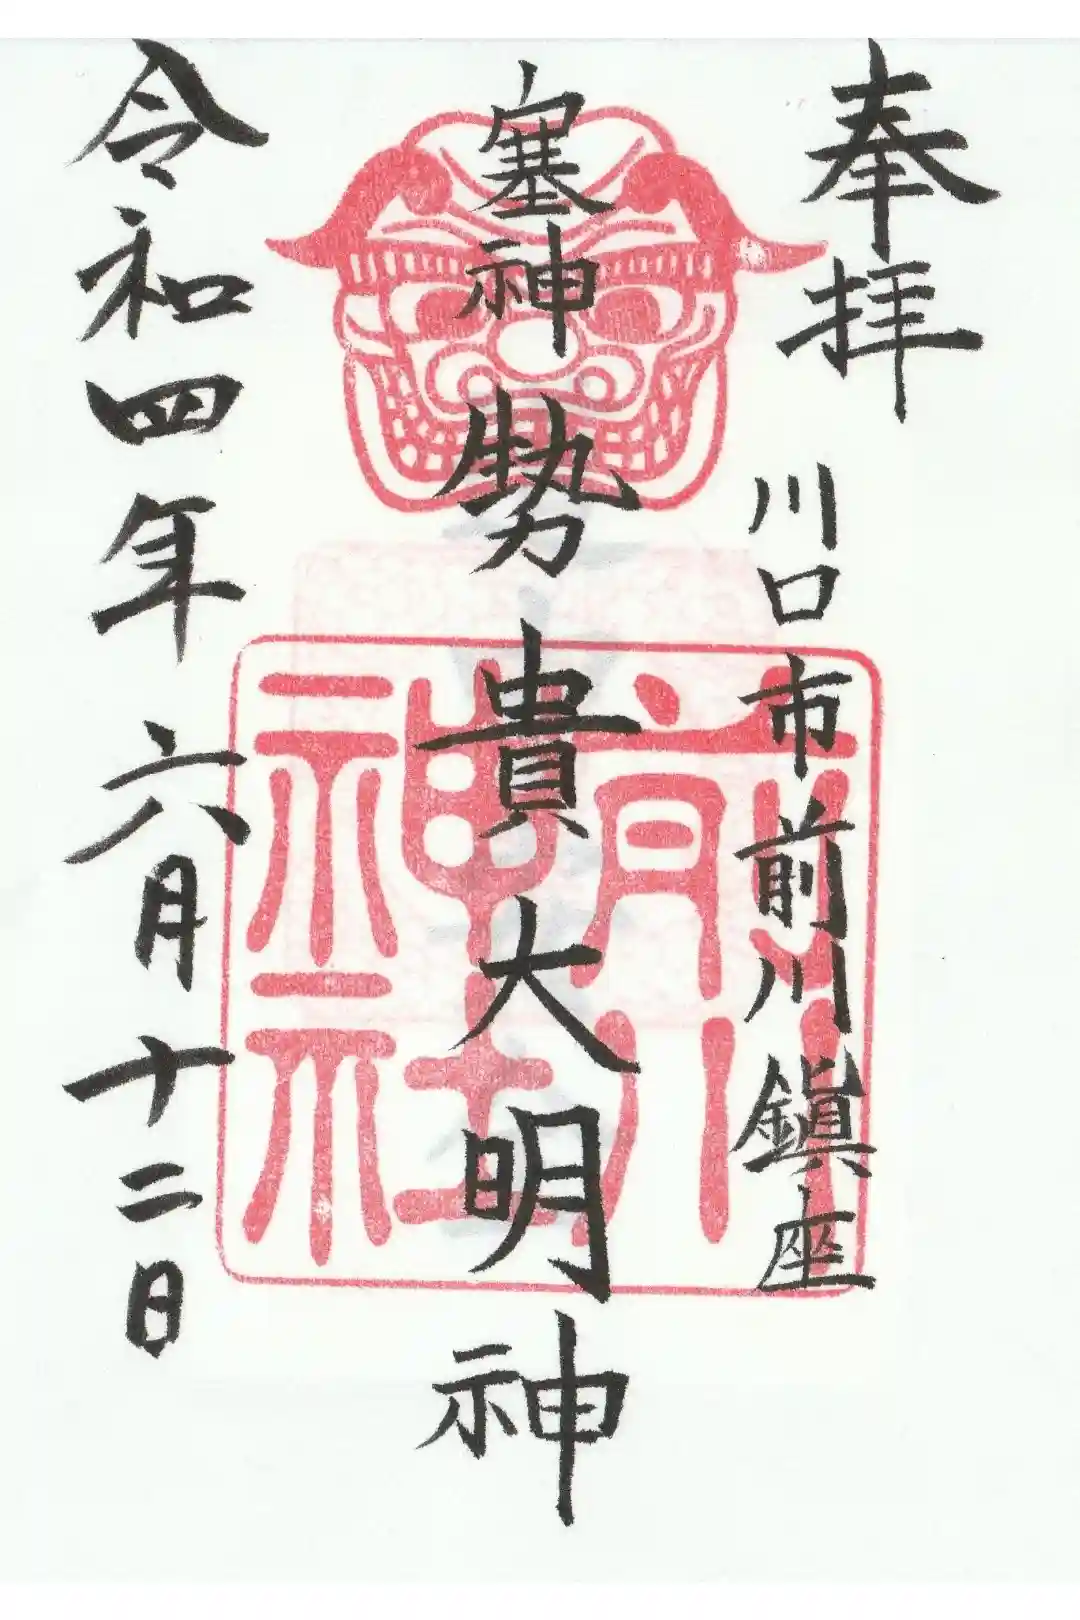 奉拝
川口市前川鎮座
塞神
勢貴大明神
前川神社
令和四年六月十二日